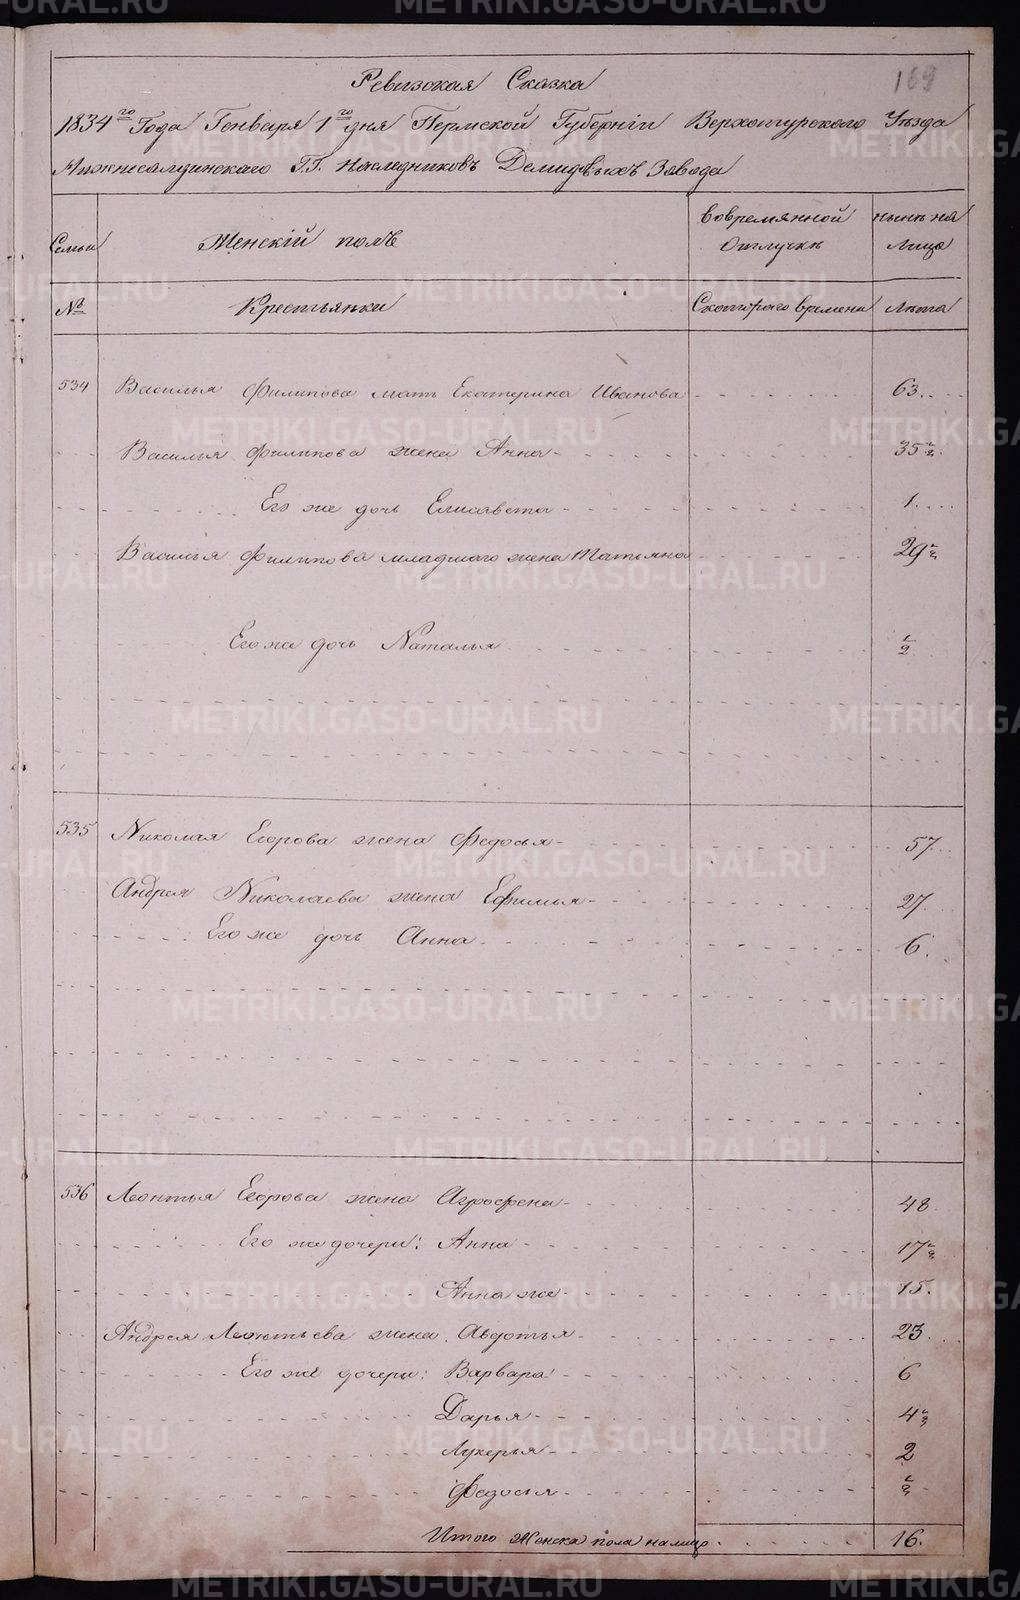 169
Ревизская Сказка
1834го Года Генваря 1го дня Пермской Губернiи Верхотурскаго Уѣзда
Нижнесалдинскаго Г.Г. Наследниковъ Демидовыхъ Завода
Семьи Женскiй полъ вовремянной отлучкѣ нынѣ на лице
№ Крестьянки Скотораго времени Лѣта
534 Василья Филипова мать Екатерина Иванова 63
Василья Филипова жена Анна 35 1/2
Его же дочь Елисавета 1
Василья Филипова младшаго жена Татьяна 29 1/2
Его же дочь Наталья 1/2
535 Николая Егорова жена Федосья 57
Андрея Николаева жена Ефимья 27
Его же дочь Анна 6
536 Леонтья Егорова жена Агрофена 48
Его же дочери: Анна 17 1/2
Анна же 15
Андрея Леонтьева жена Авдотья 23
Его же дочери: Варвара 6
Дарья 4 1/2
Лукерья 2
Федосья 1/2
Итого Женска пола налицо 16.
METRIKI.GASO-URAL.RU